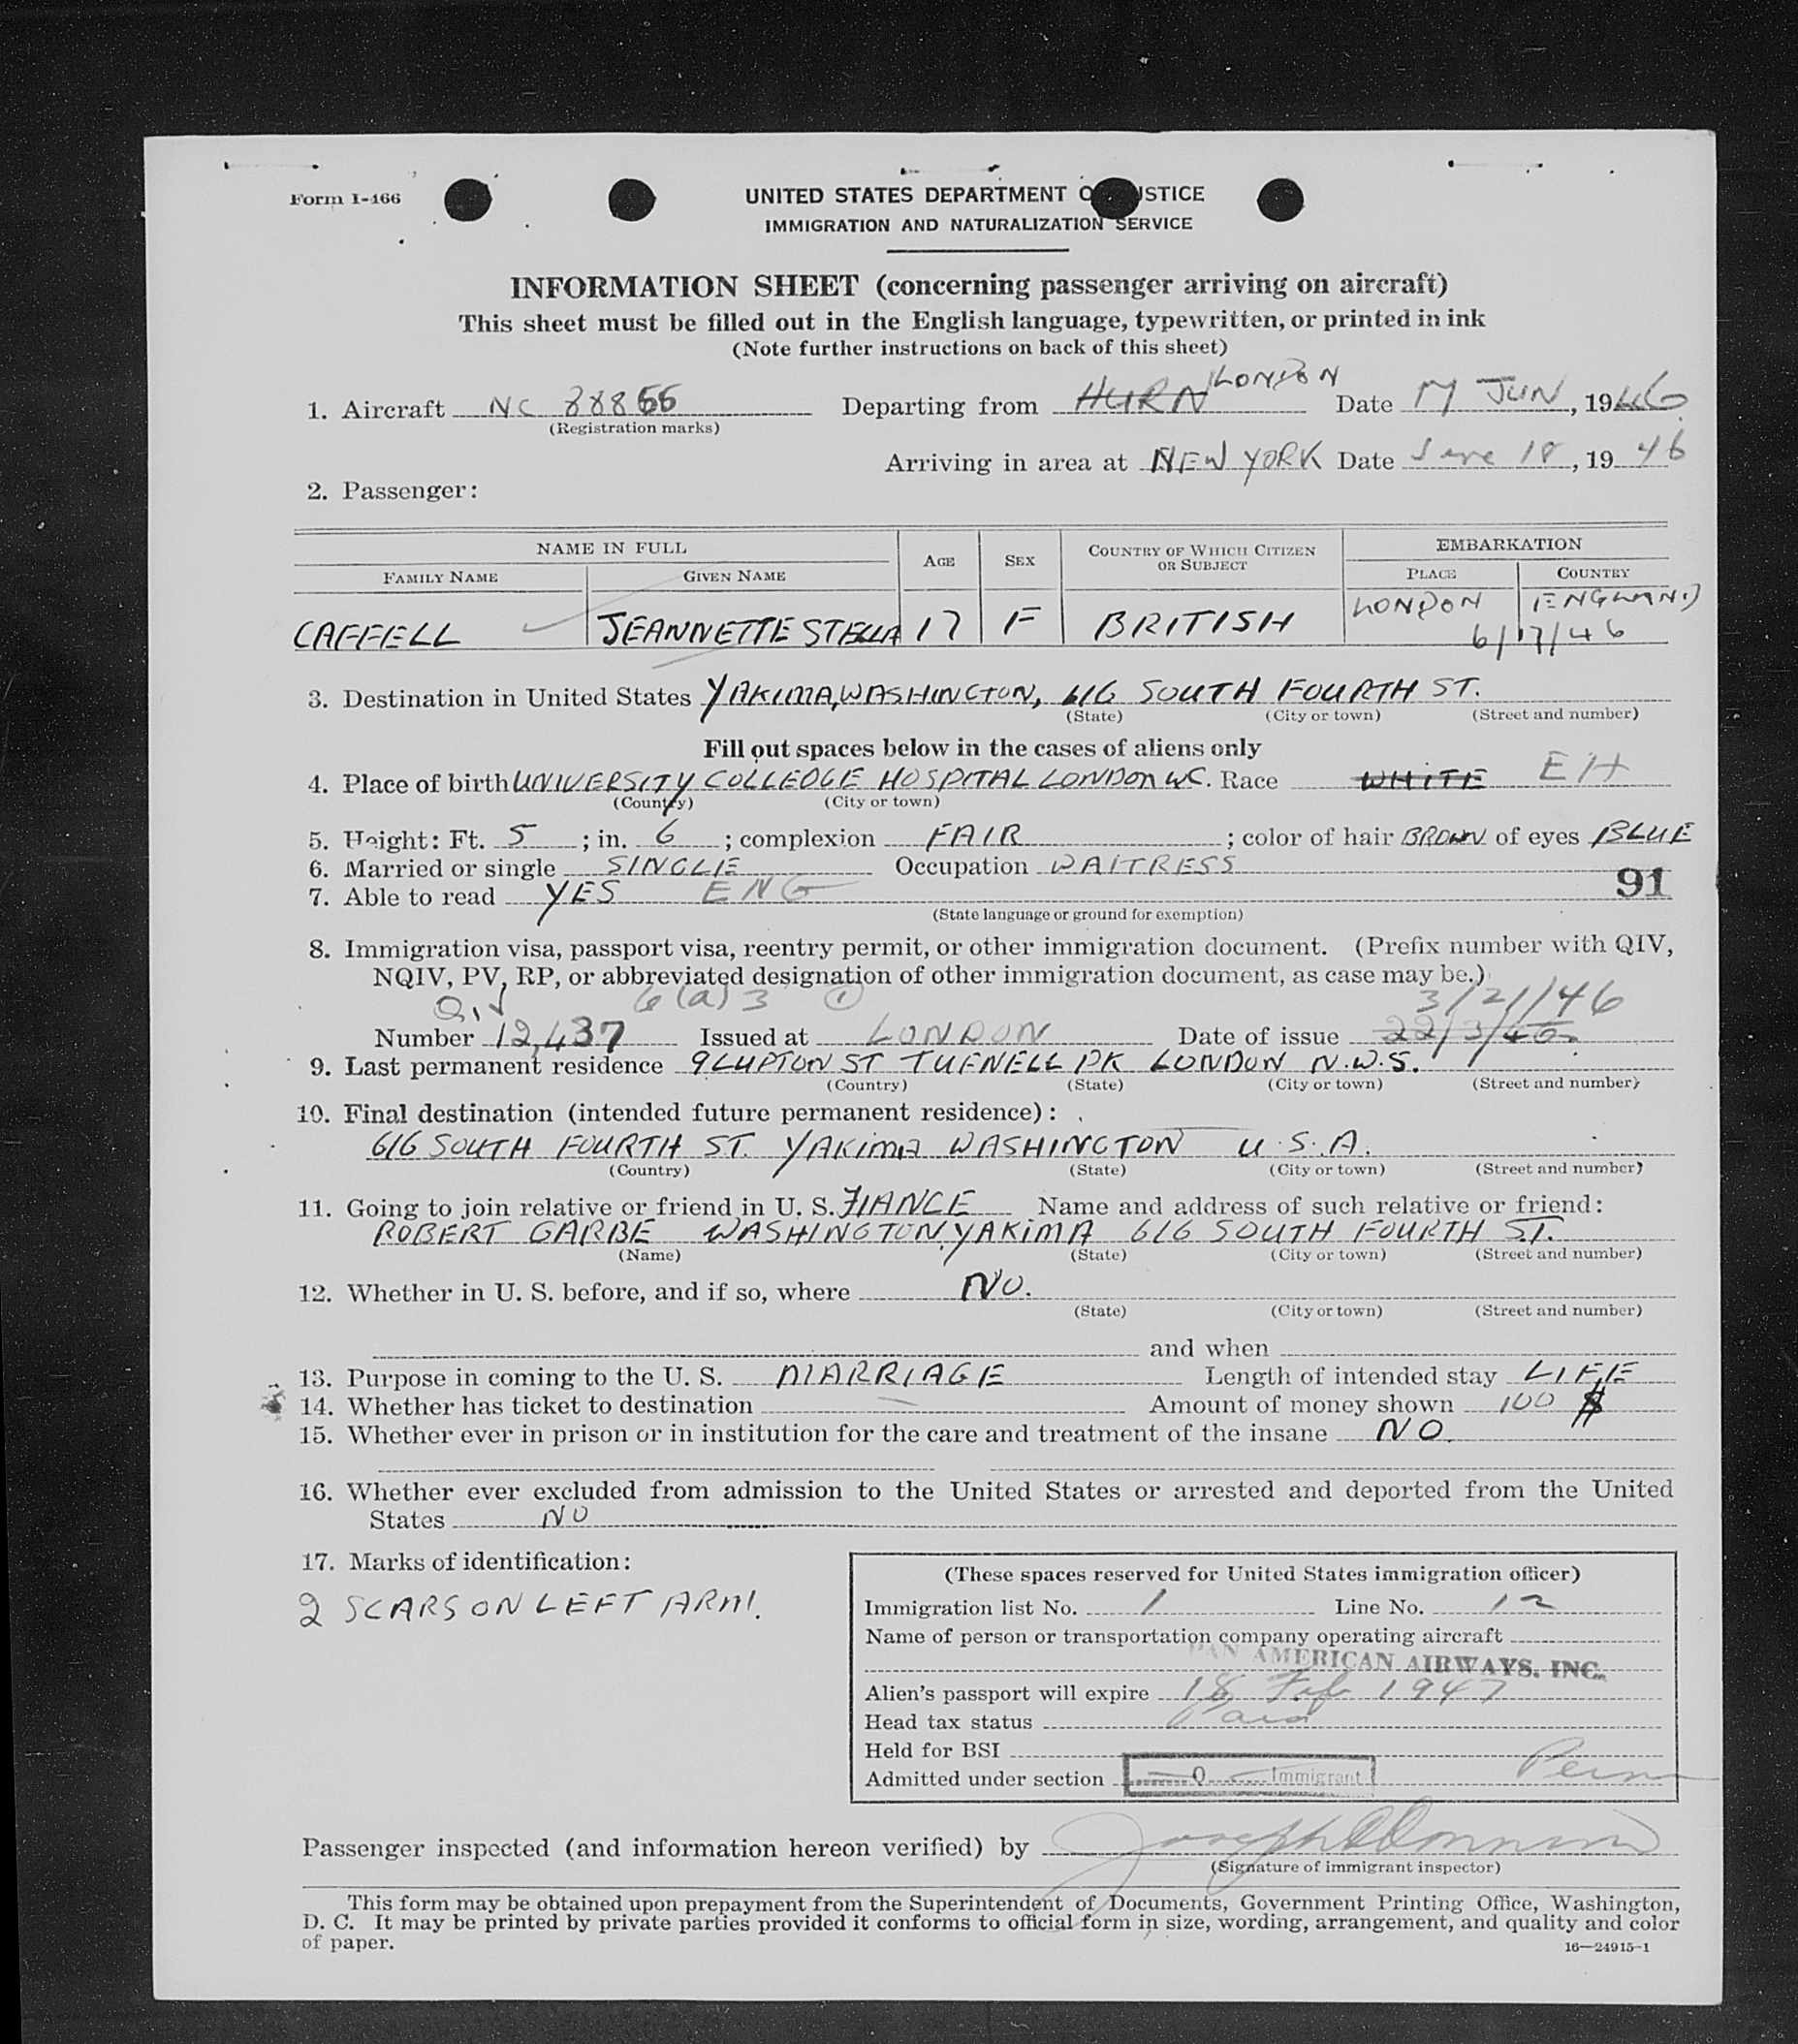 Form I-466
UNITED STATES DEPARTMENT OF JUSTICE
IMMIGRATION AND NATURALIZATION SERVICE
INFORMATION SHEET (concerning passenger arriving on aircraft)
This sheet must be filled out in the English language, typewritten, or printed in ink
(Note further instructions on back of this sheet)
1. Aircraft NC 88856 Departing from HURN LONDON Date 17 JUN, 1946
(Registration marks)
Arriving in area at NEW YORK Date June 18, 1946
2. Passenger:
NAME IN FULL AGE SEX COUNTRY OF WHICH CITIZEN OR SUBJECT EMBARKATION
FAMILY NAME GIVEN NAME PLACE COUNTRY
CAFFELL JEANNETTE STELLA 17 F BRITISH LONDON ENGLAND
6/17/46
3. Destination in United States YAKIMA, WASHINGTON, 616 SOUTH FOURTH ST.
(State) (City or town) (Street and number)
Fill out spaces below in the cases of aliens only
4. Place of birth UNIVERSITY COLLEDGE HOSPITAL LONDON WC. Race WHITE EH
(Country) (City or town)
5. Height: Ft. 5 ; in. 6 ; complexion FAIR ; color of hair BROWN of eyes BLUE
6. Married or single SINGLE Occupation WAITRESS
91
7. Able to read YES ENG
(State language or ground for exemption)
8. Immigration visa, passport visa, reentry permit, or other immigration document. (Prefix number with QIV,
NQIV, PV, RP, or abbreviated designation of other immigration document, as case may be.)
QIV 6(a)3 1 3/21/46
Number 12,437 Issued at LONDON Date of issue 22/3/46.
9. Last permanent residence 9 LUPTON ST TUFNELL PK LONDON N.W.5.
(Country) (State) (City or town) (Street and number)
10. Final destination (intended future permanent residence):
616 SOUTH FOURTH ST. YAKIMA WASHINGTON U.S.A.
(Country) (State) (City or town) (Street and number)
11. Going to join relative or friend in U. S. FIANCE Name and address of such relative or friend:
ROBERT GARBE WASHINGTON, YAKIMA 616 SOUTH FOURTH ST.
(Name) (State) (City or town) (Street and number)
12. Whether in U. S. before, and if so, where NO.
(State) (City or town) (Street and number)
and when
13. Purpose in coming to the U. S. MARRIAGE Length of intended stay LIFE
14. Whether has ticket to destination — Amount of money shown 100 $
15. Whether ever in prison or in institution for the care and treatment of the insane NO.
16. Whether ever excluded from admission to the United States or arrested and deported from the United
States NO
17. Marks of identification:
2 SCARS ON LEFT ARM.
(These spaces reserved for United States immigration officer)
Immigration list No. 1 Line No. 12
Name of person or transportation company operating aircraft
PAN AMERICAN AIRWAYS, INC.
Alien's passport will expire 18 Feb 1947
Head tax status Paid
Held for BSI
Admitted under section Q Immigrant Perm
Passenger inspected (and information hereon verified) by
(Signature of immigrant inspector)
This form may be obtained upon prepayment from the Superintendent of Documents, Government Printing Office, Washington,
D. C. It may be printed by private parties provided it conforms to official form in size, wording, arrangement, and quality and color
of paper.
16—24915-1